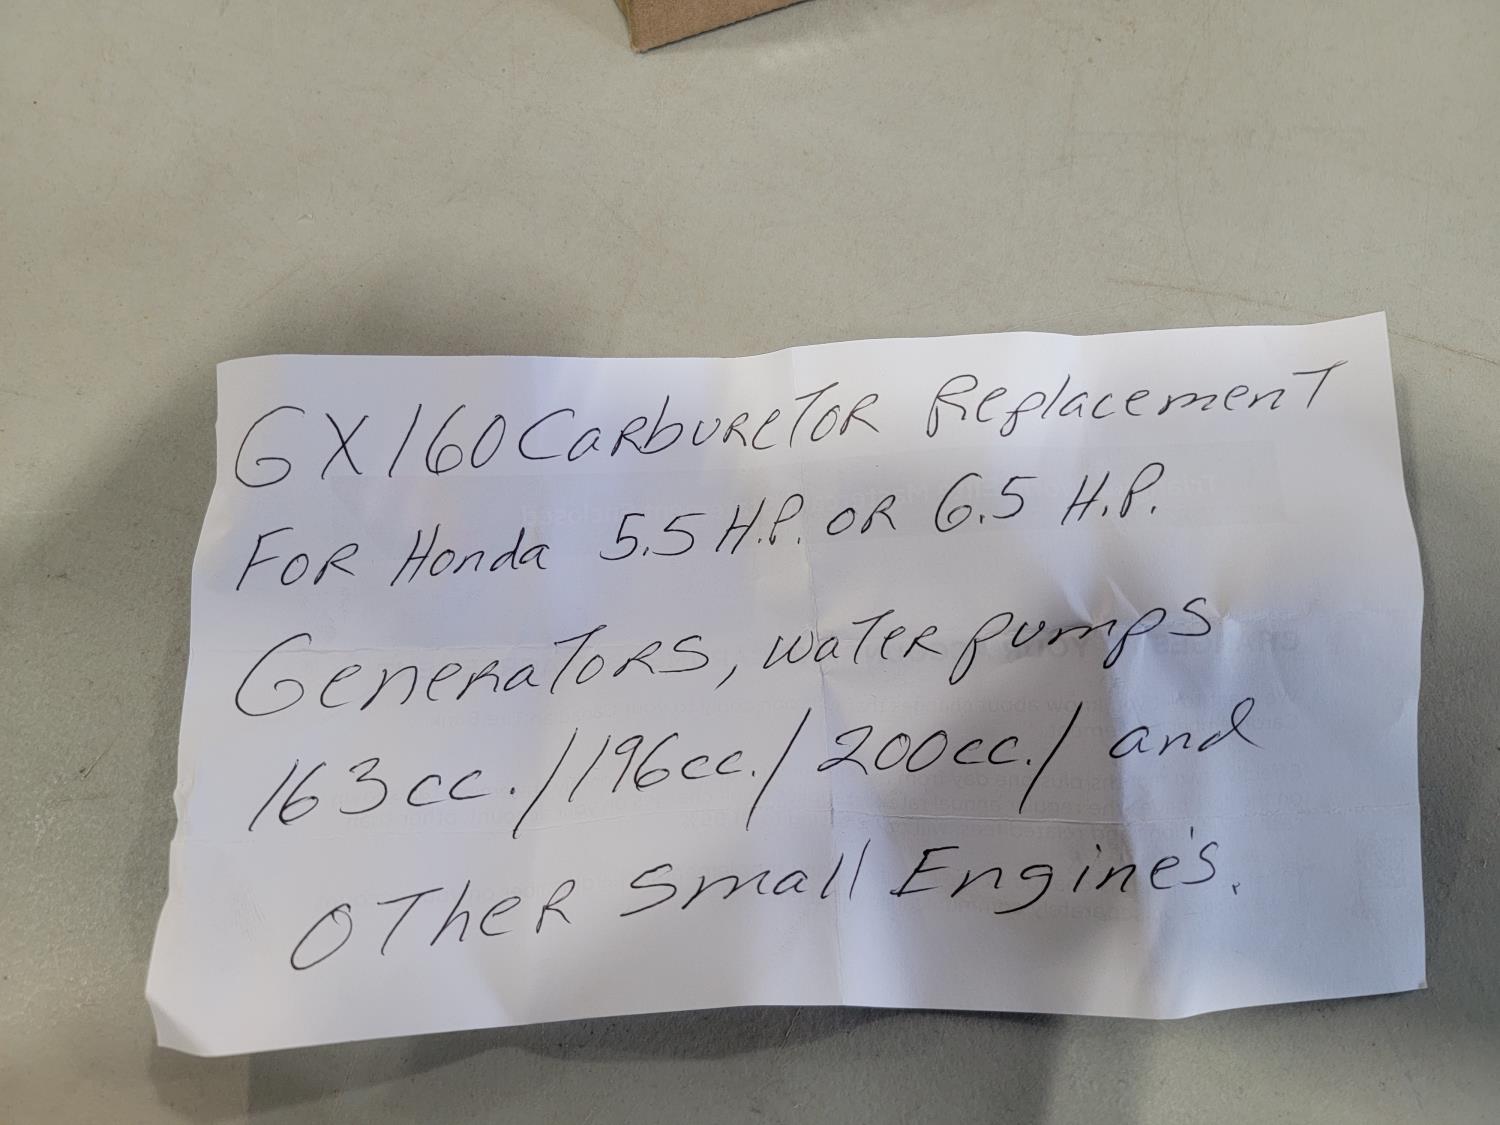 GX160 Carburetor Replacement
For Honda 5.5 H.P. or 6.5 H.P.
Generators, water pumps
163cc./196cc./200cc./ and
other small Engine's.